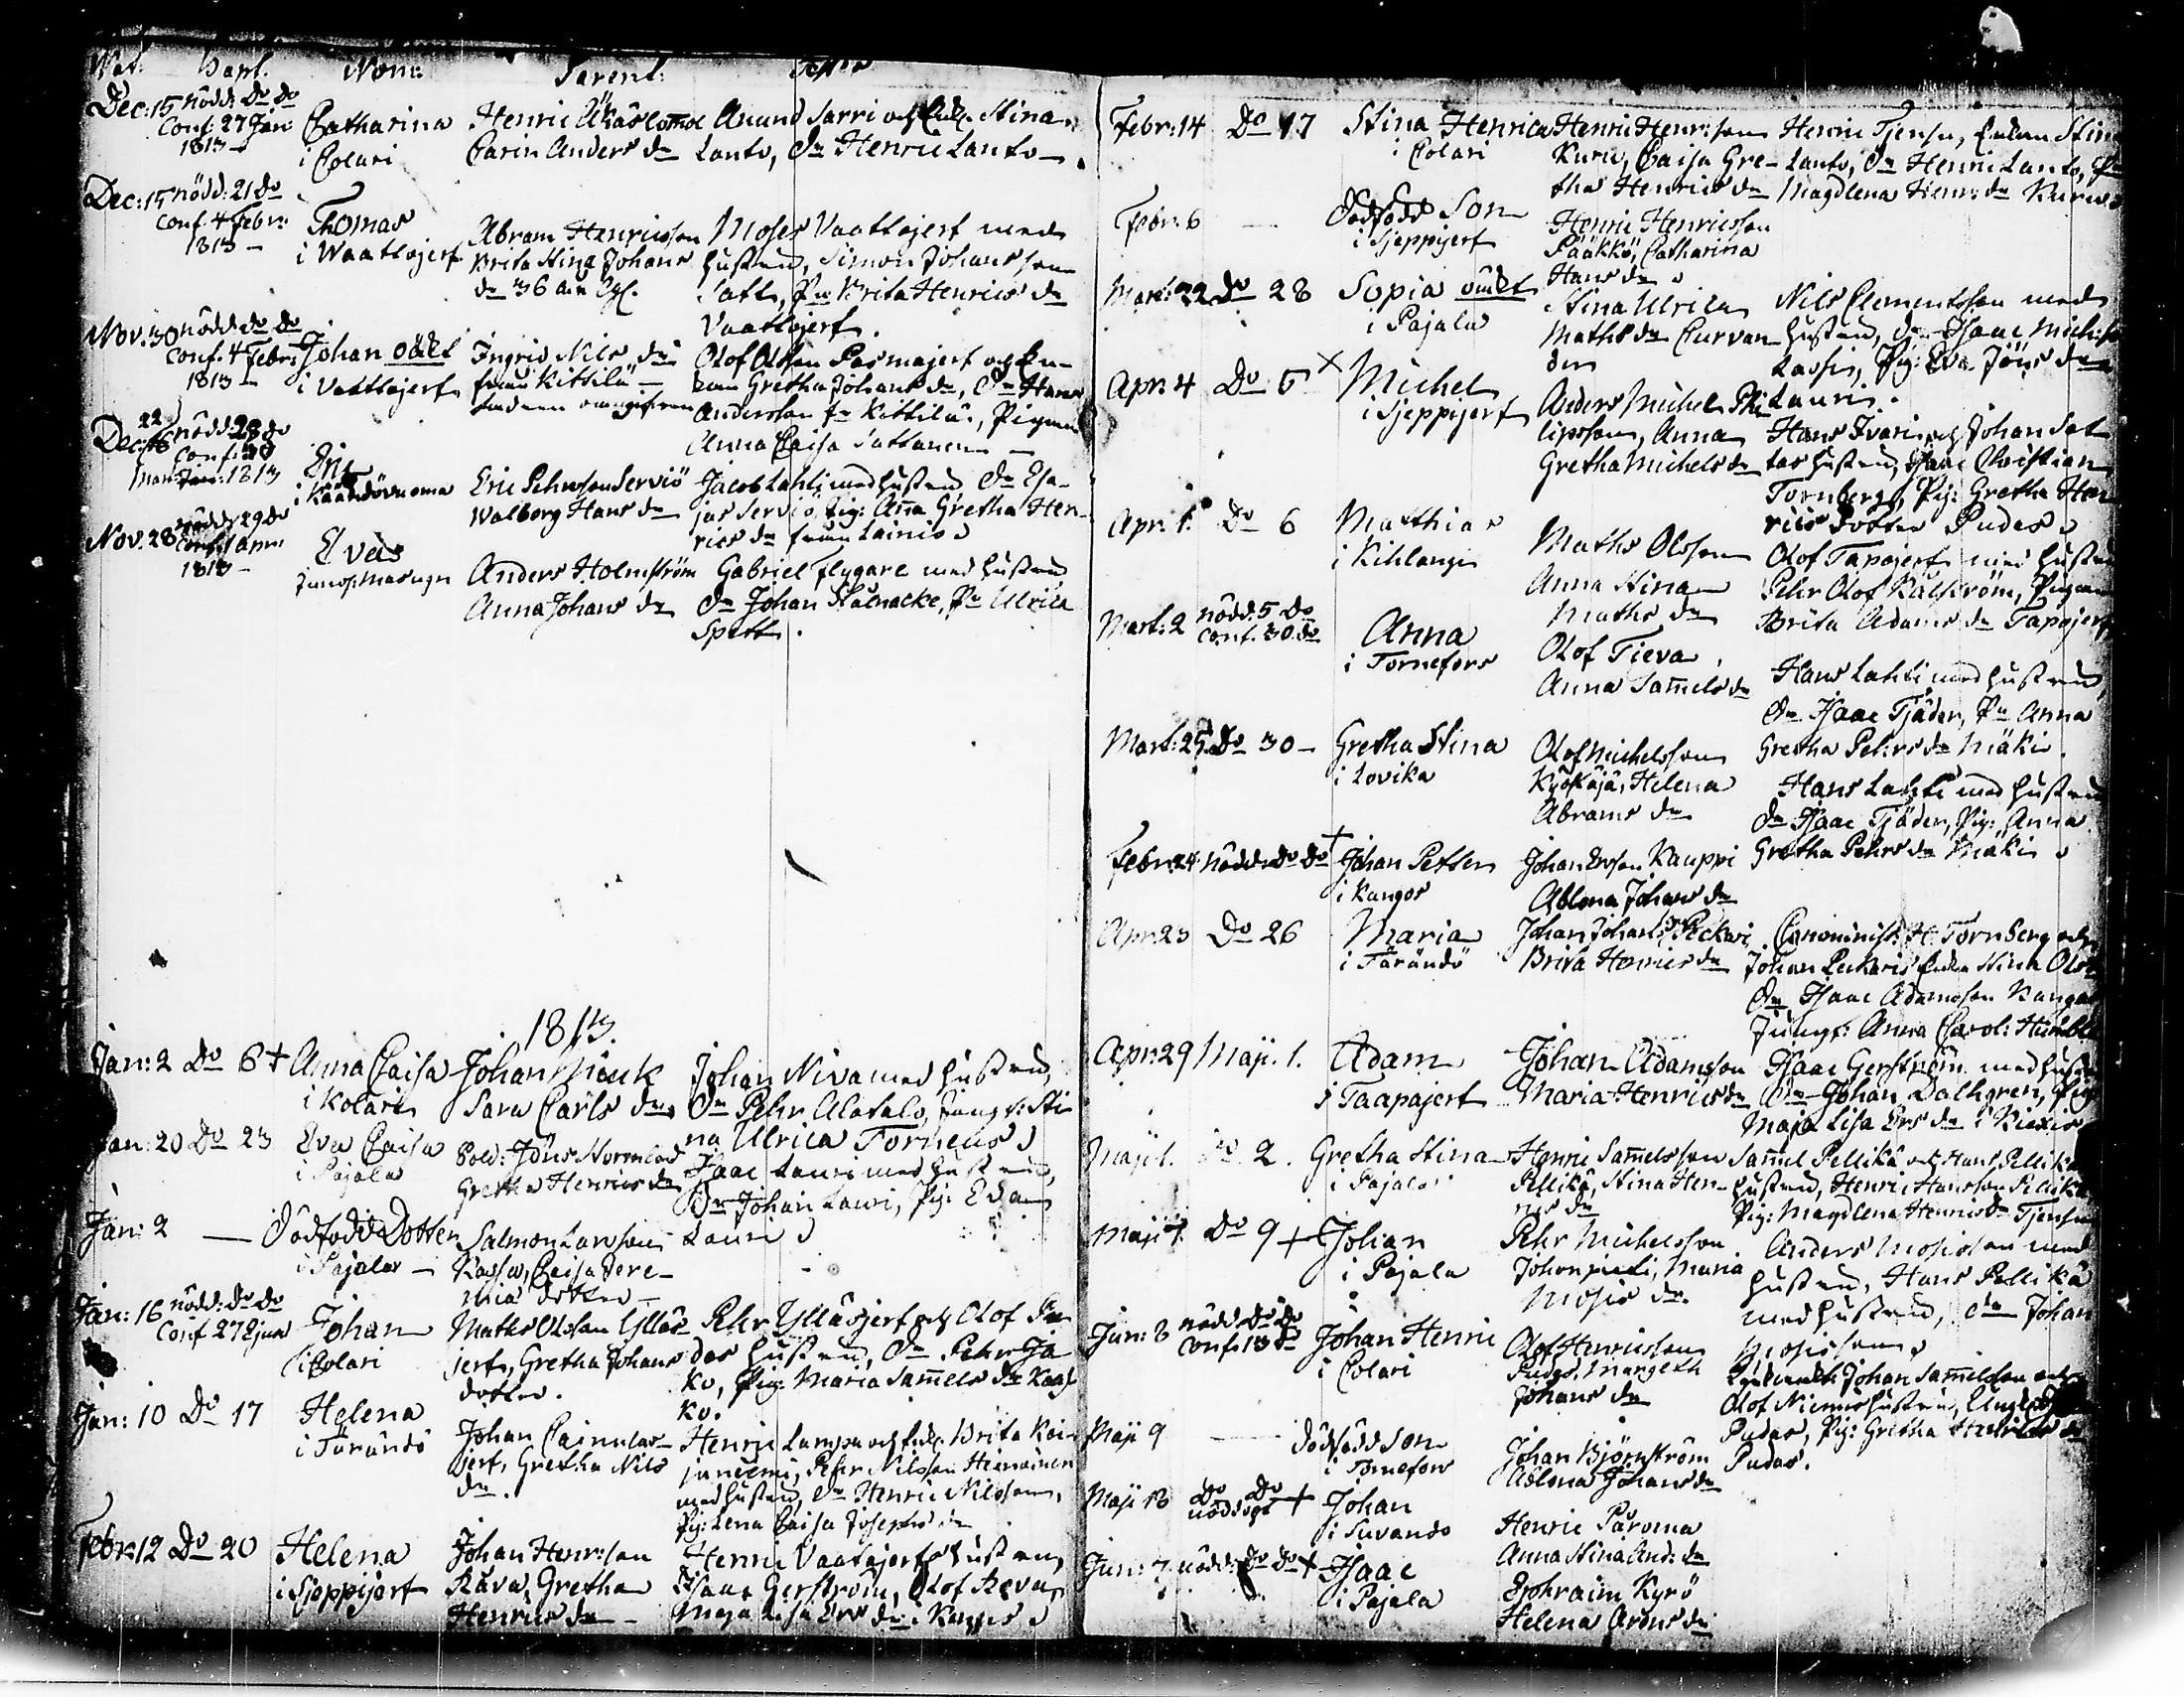 Nat: Bapt. Nom: Parent: Test:
Dec: 15 nödd: Do Do Conf: 27 Jan: 1813 –
Catharina i Colari
Henric Äkäslomol
Carin Anders dr
Anund Sarri och Enk. Stina
Lanto, Dr Henric Lanto –
Dec: 15 nödd: 21 Do Conf. 4 Febr: 1813 –
Thomas i Waattojerf
Abram Henricsson
Brita Stina Johans
dr 36 år
Moses Vaattojerf med
hustru, Simon Johansson
Satt, Pn Brita Henrics dr
Vaattojerf.
Nov: 30 nödd do do Conf. 4 Febr: 1813 –
Johan oäkt i Vaattojerf
Ingrid Nils dr
från Kittilä –
Olof Olsson Pasmajerf och En-
kan Gretha Johans dr, Dr Hans
Andersson fr Kittilä, Pigan
Anna Caisa Sattanen –
22
Dec: 16 nödd: 28 do Conf:
Mart: Jan: 1813
Eric
i Kaardovuoma
Eric Pehrsson Serviö
Walborg Hans dr
Jacob Lahti med hustru Dr Esa-
jas Serviö, Pig: Anna Gretha Hen-
rics dr från Lainio
Nov. 28 nödd: 29 do Conf: 1 Apr: 1813 –
Eva
Junos: Masugn
Anders Holmström
Anna Johans dr
Gabriel Flygare med hustru
Dr Johan Stålnacke, Pn Ulrica
Spett.
1813.
Jan: 2 Do 6 + Anna Caisa
i Kolari
Johan Niouk
Sara Carls dr
Johan Niva med hustru,
Dr Pehr Alatalo, Jungf: Sti
na Ulrica Torneus
Jan: 20 Do 23 Eva Caisa
i Pajala
Sold: Jöns Normlod
Gretha Henrics dr
Isaac Lauri med hustru,
Dr Johan Lauri, Pig: Eva
Lauri
Jan: 2 — Dödfödd Dotter
i Pajala –
Salmon Larsson
Kassa, Caisa Jere-
mia dotter –
Jan: 16 nödd: do do Conf. 27 Ejusd
Johan
i Colari
Maths Olsson Ylläs
jerf, Gretha Johans
dotter.
Pehr Ylläsjerf och Olof Pu
das hustru, Dr Pehr Ja
ko, Pig: Maria Samels dr Kaaf
ko.
Jan: 10 Do 17 Helena
i Tärändö
Johan Cainulas-
jerf, Gretha Nils
dr.
Henric Lampa och Enk. Brita Koi-
juniemi, Pehr Nilsson Heinonen
med hustru, Dr Henric Nilsson,
Pig: Lena Caisa Josephs dr
Febr: 12 Do 20 Helena
i Sjeppijerf
Johan Henr:son
Räva, Gretha
Henrics dr –
Henric Vaattojerfs hustru,
Isaac Gerström, Olof Reva,
Maja Lisa Ers dr i Kexis
Febr: 14 Do 17 Stina Henrica
i Colari
Henric Henr:son
Kuru, Caisa Gre-
tha Henrics dr
Henric Tjensu, Enkan Stina
Lanto, Dr Henric Lanto, Pn
Magdlena Henr: dr Kuru
Febr: 6 — Dödfödd Son
i Sjeppijerf
Henric Henricsson
Pääkkö, Catharina
Hans dr
Mart: 22 Do 28 Sopia oäkt
i Pajala
Stina Ulrica
Maths dr Curvan
den
Nils Clementsson med
hustru, Dr Isaac Mich:son
Lassis, Pig: Eva Jöns dr
Lauri.
Apr: 4 Do 5 × Michel
i Sjeppijerf
Anders Michel Phi
lipsson, Anna
Gretha Michels dr
Hans Ivari och Johan Sat
tas hustru, Isaac Christian
Tornberg, Pig: Gretha Hen
rics Dotter Pudas
Apr: 1. Do 6 Matthias
i Kihlangi
Maths Olsson
Anna Stina
Maths dr
Olof Tapojerf med hustru
Pehr Olof Kälström, Pigan
Brita Adams dr Tapojerf
Mart: 2 nödd: 5 Do Conf. 30 do
Anna
i Tornefors
Olof Tieva
Anna Samels dr
Hans Lahti med hustru,
Dr Isaac Tjäder, Pn Anna
Gretha Pehrs dr Mäki.
Mart: 25 Do 30 – Gretha Stina
i Lovika
Olof Michelsson
Kyöskäjä, Helena
Abrams dr
Hans Lahti med hustru
Dr Isaac Tjäder, Pig: Anna
Gretha Pehrs dr Mäki
Febr: 24 nödd: Do Do + Johan Petter
i Kangos
Johan Ersson Kauppi
Ablona Johans dr
Apr: 23 Do 26 Maria
i Tärändö
Johan Johansson Peckari
Brita Henrics dr
Cronominist: H: Tornberg och
Johan Peckaris Enka Stina Ols
Dr Isaac Adamsson Kangas
Jungf: Anna Carol: Humble
Apr: 29 Maji. 1. Adam
i Taapajerf
Johan Adamsson
Maria Henrics dr
Isaac Gerström med hustru
Dr Johan Dalhgren, Pig
Maja Lisa Ers dr i Kiexis
Maji 1. Do 2. Gretha Stina
i Pajala
Henric Samelsson
Pellikä, Stina Hen-
rics dr
Samel Pellikä och Hans Pellikä
hustru, Henric Hansson Pellikä
Pig: Magdlena Henrics dr Tjensu
Maji 7 Do 9 + Johan
i Pajala
Pehr Michelsson
Johonpieti, Maria
Mosis dr
Anders Mosisson med
hustru, Hans Pellikä
med hustru, Dr Johan
Mosisson
Jan: 3 nödd: Do Do Conf: 13 do
Johan Henric
i Colari
Olof Henricsson
Pudas, Margeth
Johans dr
Johan Samelsson och
Olof Niemis hustru,
Pudas, Pig: Gretha Henrics dr
Pudas.
Maji 9 — Dödfödd Son
i Tornefors
Johan Björnström
Ablona Johans dr
Maji 13 Do Do nöddöpt + Johan
i Suvando
Henric Paroma
Anna Stina And: dr
Jun: 7 nödd: Do Do + Isaac
i Pajala
Ephraim Kyrö
Helena Arons dr